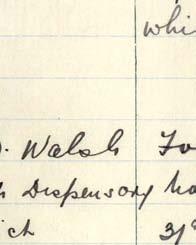 whi
. Walsh Fo
h Dispensary ho
ich 31